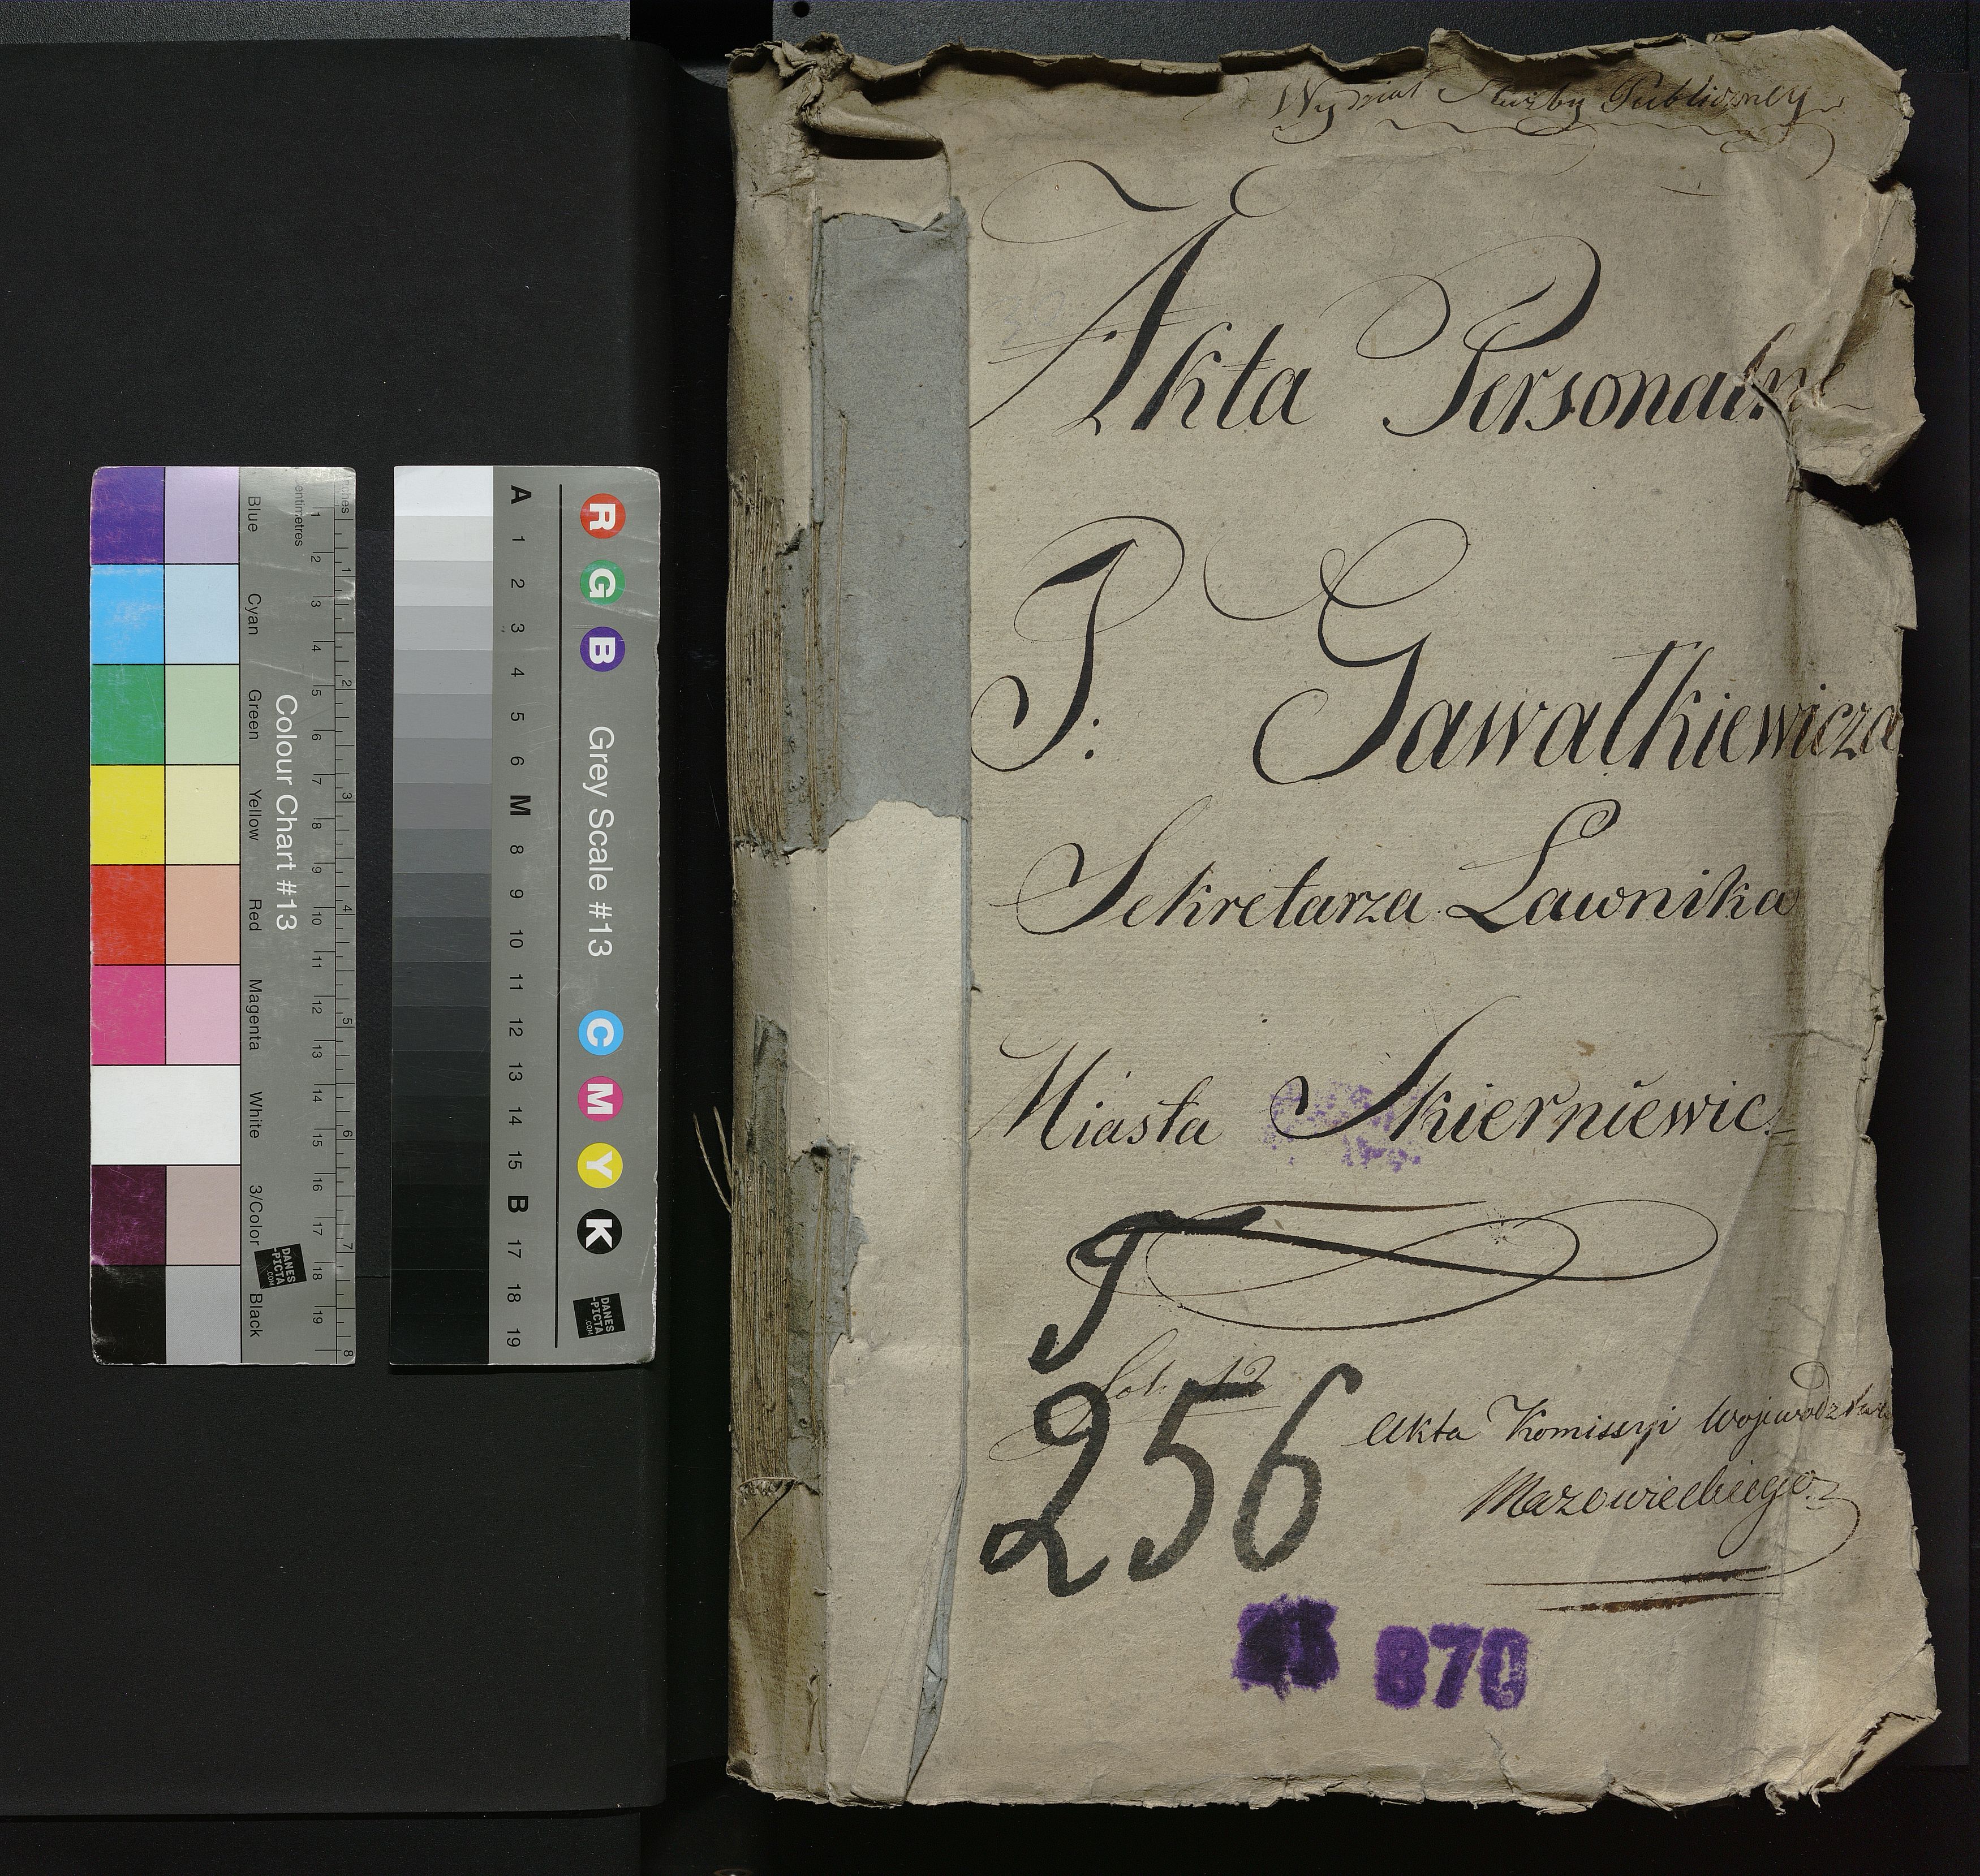 Wydział Służby Publiczney
Akta Personalne
P: Gawałkiewicza
Sekretarza Ławnika
Miasta Skierniewic.
256
Akta Komissyi Wojewodztwa
Mazowieckiego
870
Colour Chart #13
Blue
Cyan
Green
Yellow
Red
Magenta
White
3/Color
Black
1 2 3 4 5 6 7 8 9 10 11 12 13 14 15 16 17 18 19
1 2 3 4 5 6 7 8
DANES
-PICTA
.COM
Grey Scale #13
R G B C M Y K
A 1 2 3 4 5 6 M 8 9 10 11 12 13 14 15 B 17 18 19
DANES
-PICTA
.COM